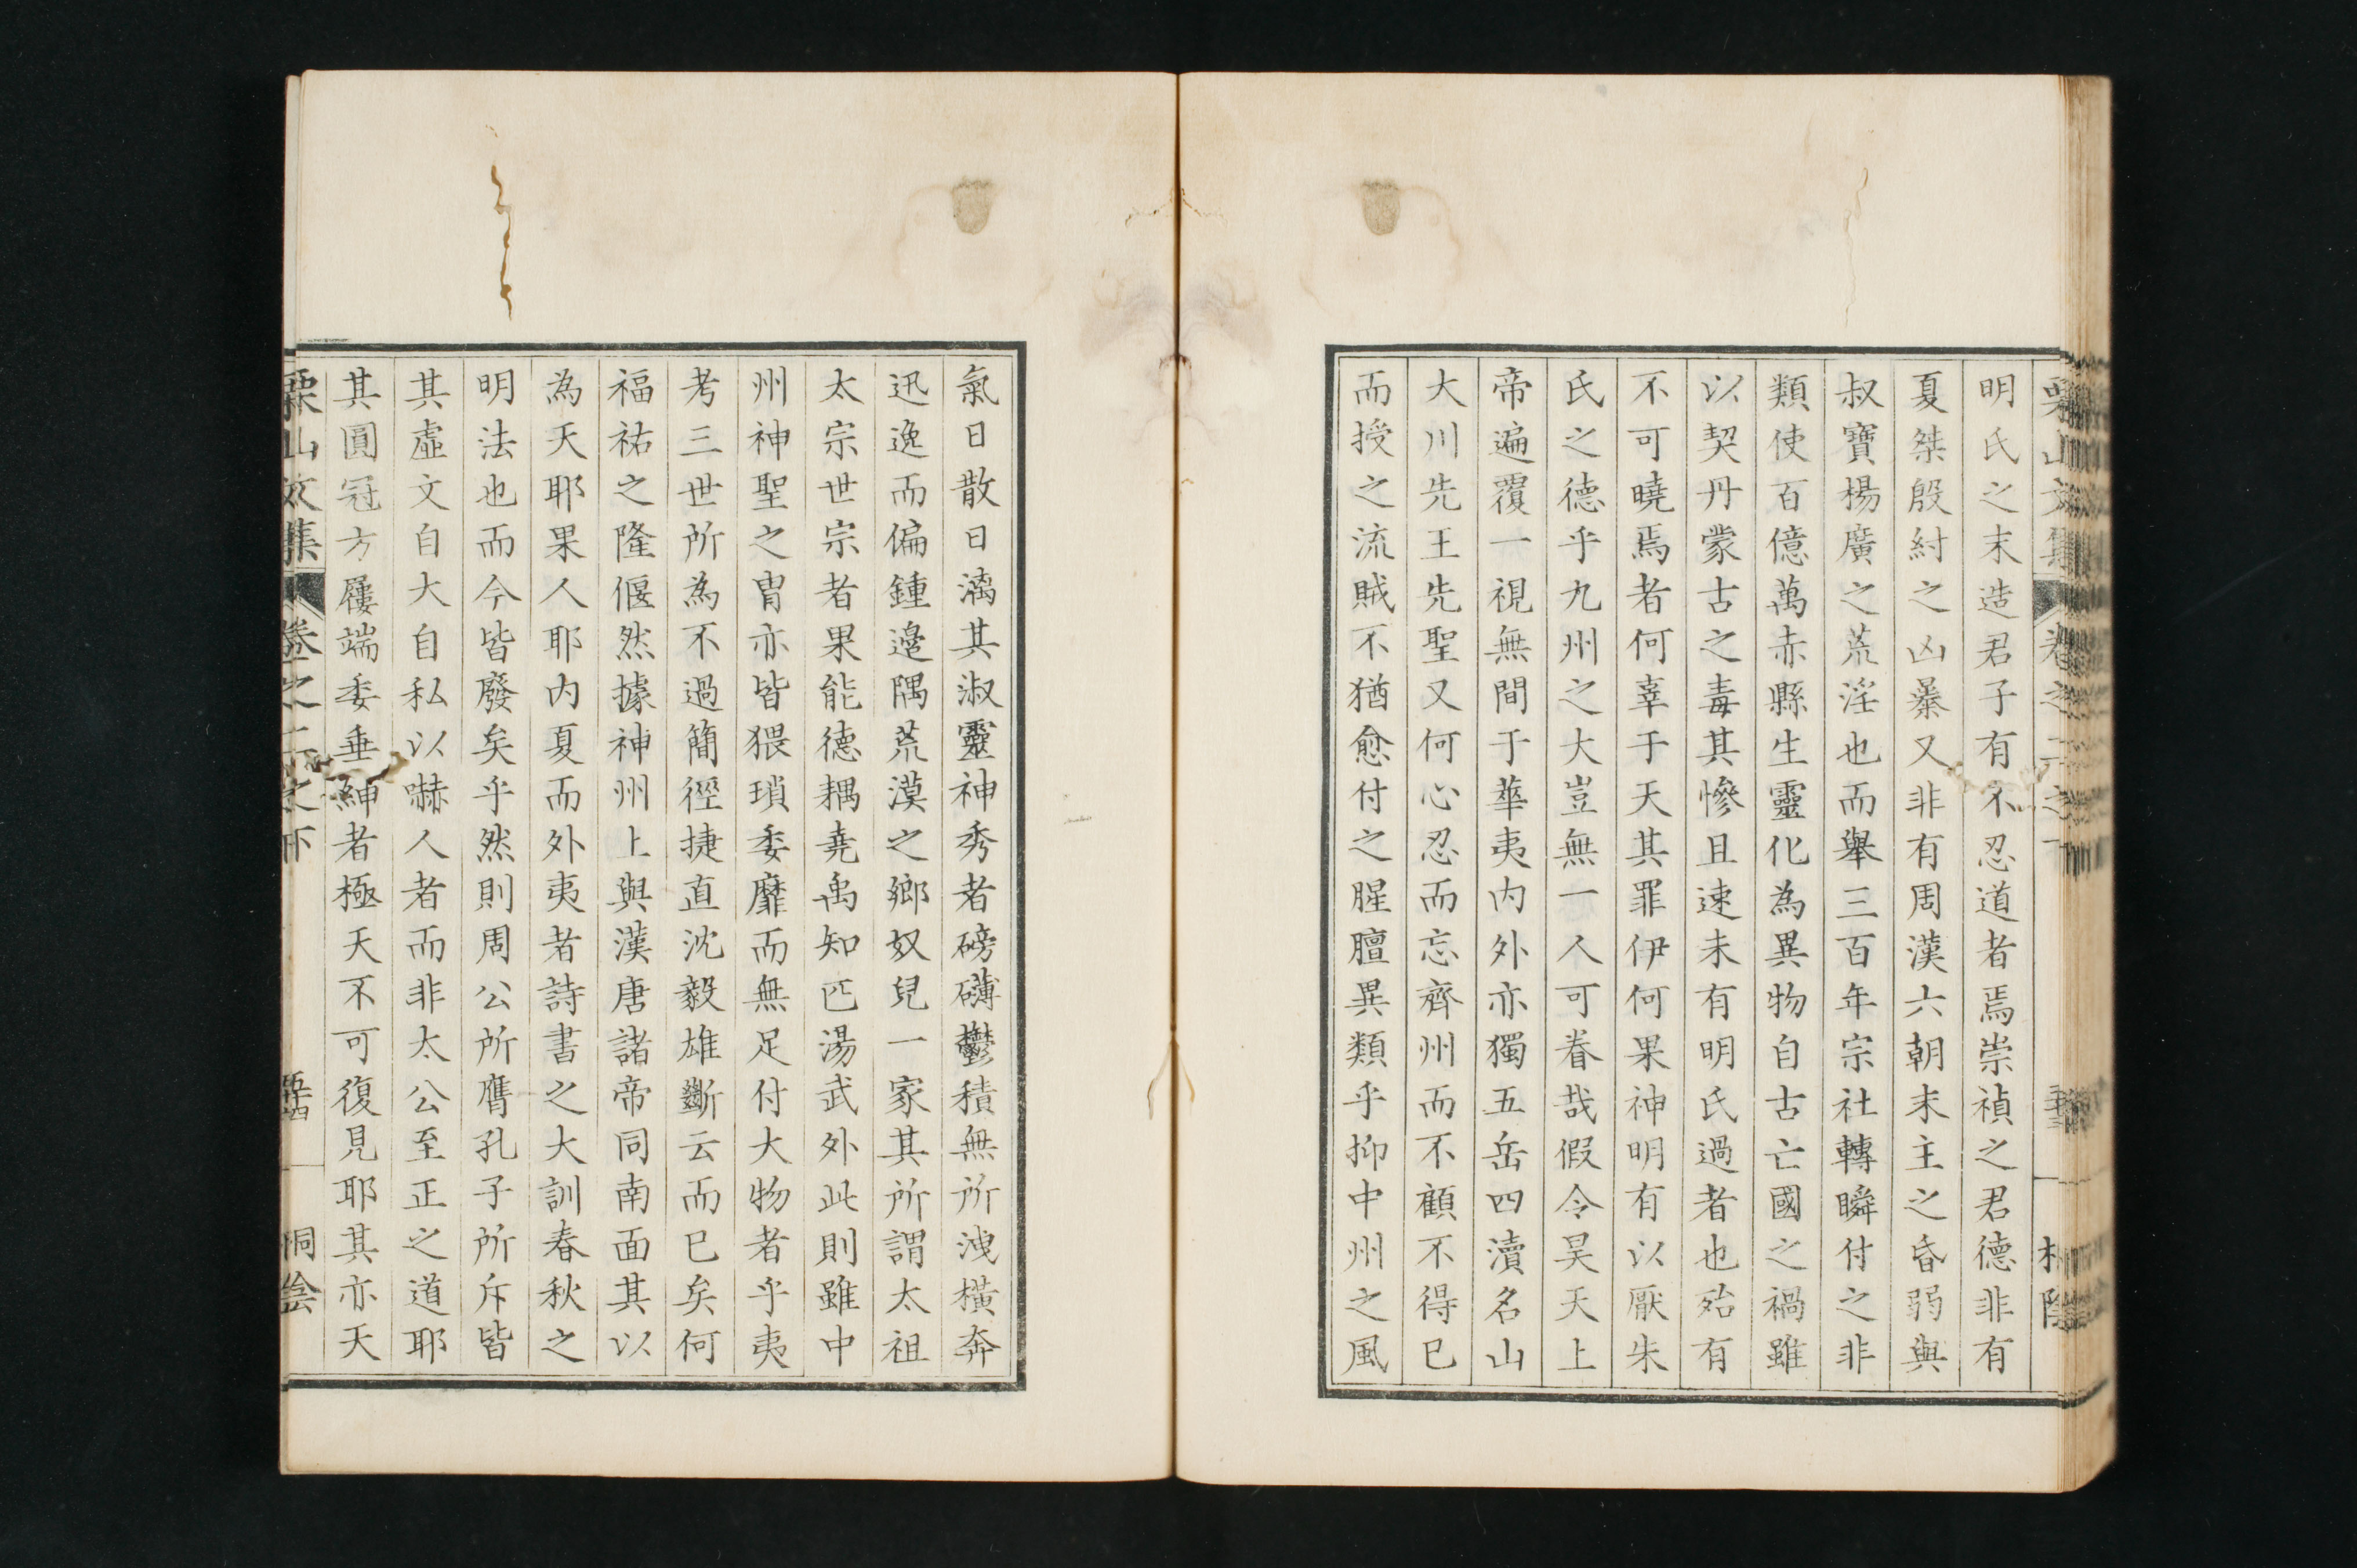 明氏之末造君子有不忍道者焉崇禎之君德非有
夏桀殷紂之凶暴又非有周漢六朝末主之昏弱與
叔寶楊廣之荒淫也而舉三百年宗社轉瞬付之非
類使百億萬赤縣生靈化為異物自古亡國之禍雖
以契丹蒙古之毒其慘且速未有明氏過者也殆有
不可曉焉者何辜于天其罪伊何果神明有以厭朱
氏之德乎九州之大豈無一人可眷哉假令昊天上
帝遍覆一視無間于華夷内外亦獨五岳四瀆名山
大川先王先聖又何心忍而忘齊州而不顧不得已
而授之流賊不猶愈付之腥膻異類乎抑中州之風
氣日散日漓其淑靈神秀者磅礴鬱積無所洩橫奔
迅逸而偏鍾邊隅荒漠之鄉奴兒一家其所謂太祖
太宗世宗者果能德耦堯禹知匹湯武外此則雖中
州神聖之冑亦皆猥瑣委靡而無足付大物者乎夷
考三世所為不過簡徑捷直沈毅雄斷云而已矣何
福祐之隆偃然據神州上與漢唐諸帝同南面其以
為天耶果人耶内夏而外夷者詩書之大訓春秋之
明法也而今皆廢矣乎然則周公所膺孔子所斥皆
其虛文自大自私以嚇人者而非太公至正之道耶
其圓冠方屨端委垂紳者極天不可復見耶其亦天
栗山文集 卷之二下之下 五十四 桐陰